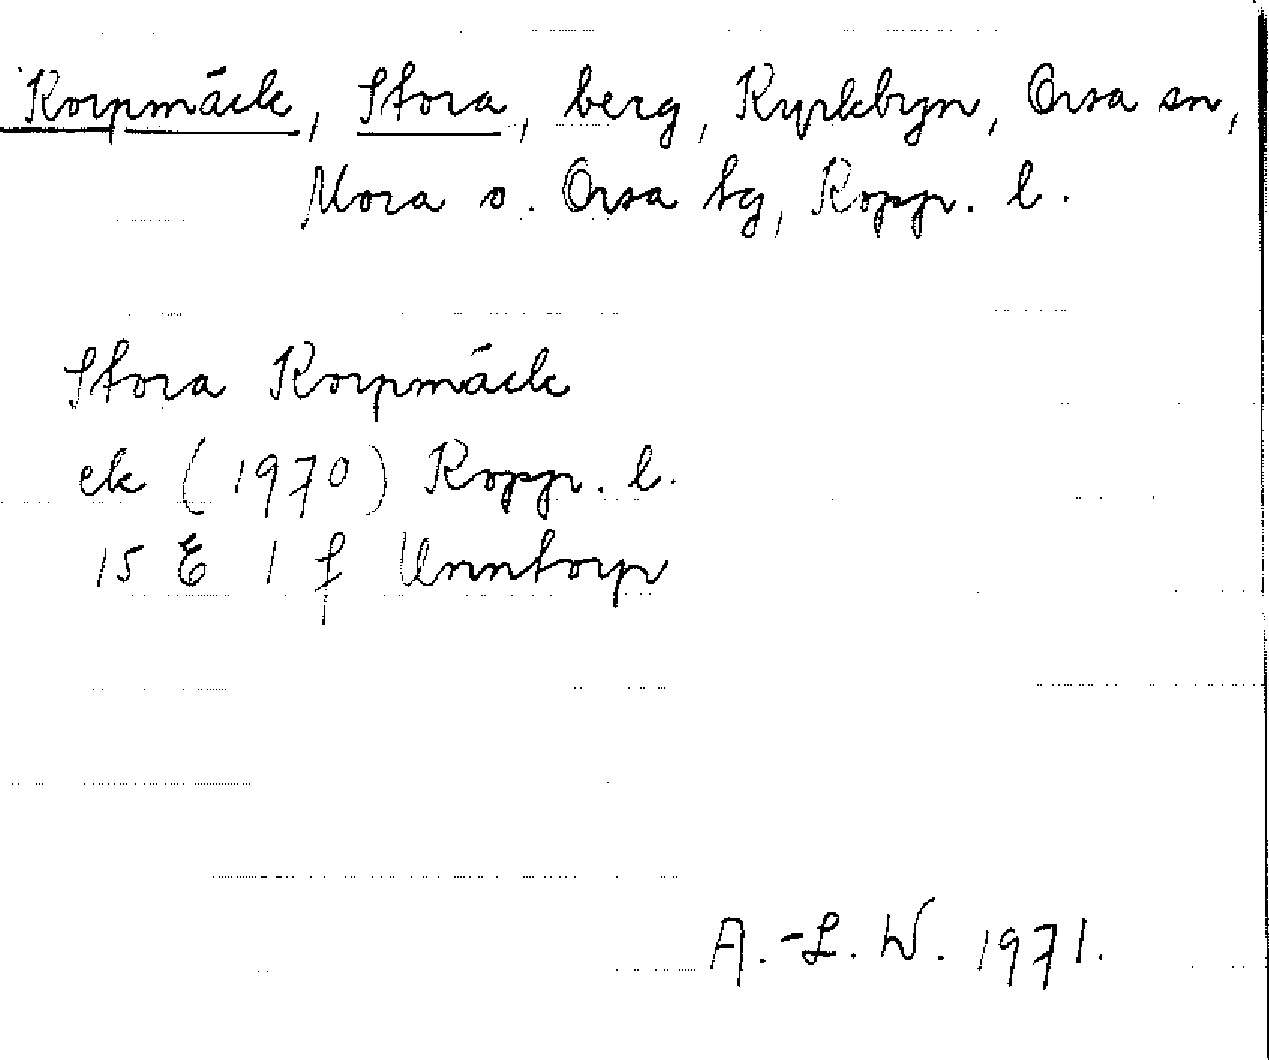 Korpmäck, Stora, berg, Kyrkbyn, Orsa sn,
Mora o. Orsa tg, Koppr. l.
Stora Korpmäck
ek (1970) Koppr. l.
15 E 1 f Unntorp
A.-L. W. 1971.